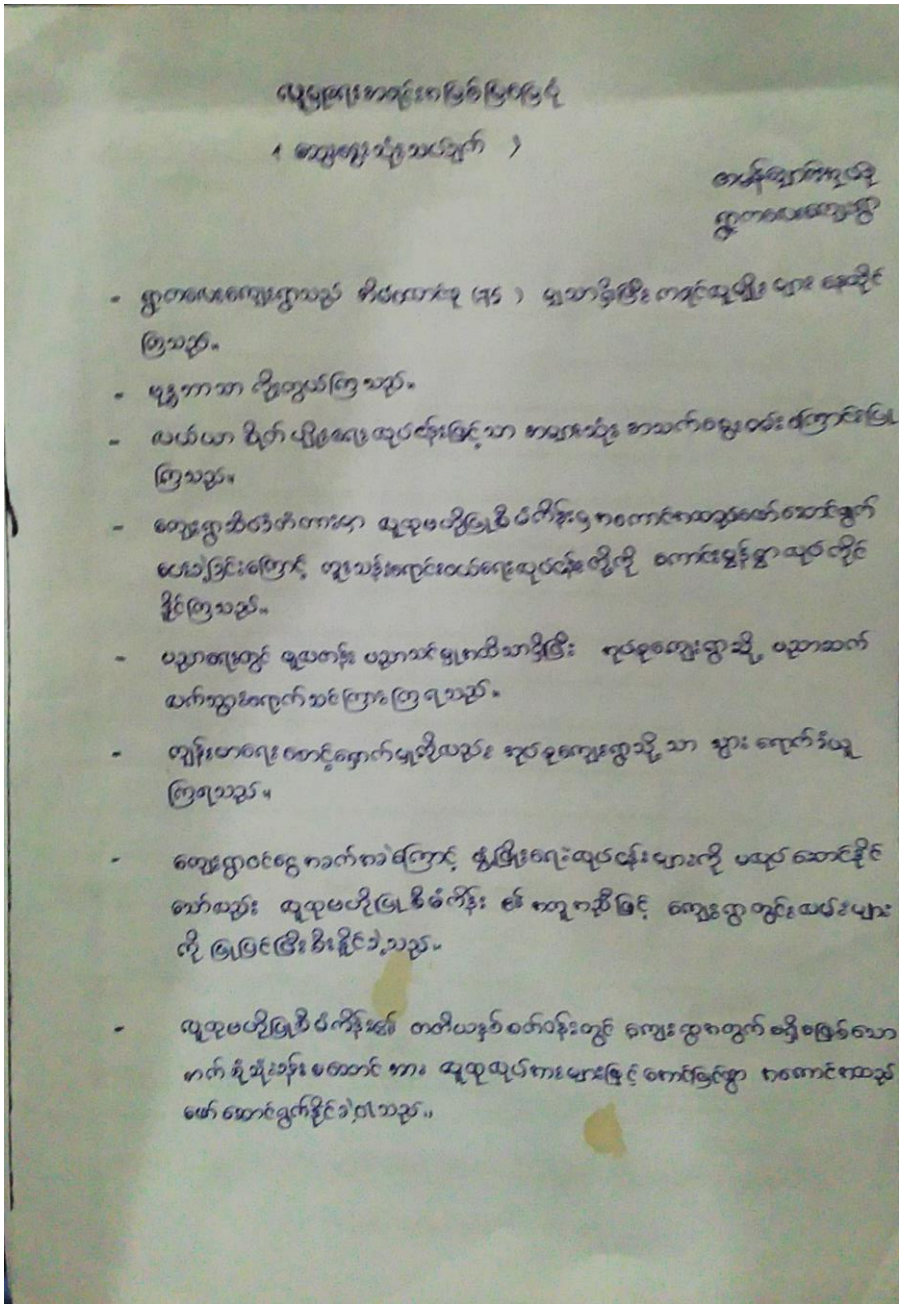 လူမှုရေးအတွင်းအဖြစ်ဖြစ်ပြပုံ
( ဆွေးနွေးသုံးသပ်ချက် )
ရွာကလေးကျေးရွာ
- ရွာကလေးကျေးရွာသည် အိမ်ထောင်စု (၅၄) မျှသာရှိပြီး ကရင်လူမျိုး များ နေထိုင်
ကြသည်။
- ဗုဒ္ဓဘာသာ ကိုးကွယ်ကြ သည်။
- လယ်ယာ စိုက် ပျိုးရေး လုပ်ငန်းဖြင့်သာ အများဆုံး အသက်မွေး ဝမ်း ကြောင်းပြု
ကြသည်။
- ကျေးရွာဆိပ်ခံတံတားမှာ လူထုဗဟိုပြုစီမံကိန်းမှ အကောင်အထည်ဖော်ဆောင်ရွက်
ပေးခဲ့ခြင်းကြောင့် ကူးသန်းရောင်းဝယ်ရေးလုပ်ငန်းတို့ကို ကောင်းမွန်စွာ လုပ်ကိုင်
နိုင်ကြသည်။
- ပညာရေးတွင် မူလတန်း ပညာသင်မှုအထိသာရှိပြီး အုပ်စုကျေးရွာသို့ ပညာဆက်
လက်သွားရောက်သင်ကြားကြ ရသည်။
- ကျန်းမာရေး စောင့်ရှောက်မှုကိုလည်း အုပ်စုကျေးရွာသို့သာ သွား ရောက်ခံယူ
ကြရသည်။
- ကျေးရွာဝင်ငွေ အခက်အခဲကြောင့် ဖွံ့ဖြိုးရေးလုပ်ငန်းများကို မလုပ်ဆောင်နိုင်
သော်လည်း လူထုဗဟိုပြုစီမံကိန်း ၏ အကူအညီဖြင့် ကျေးရွာတွင်းလမ်းများ
ကို ပြုပြင်ပြီးစီးနိုင်ခဲ့သည်။
- လူထုဗဟိုပြုစီမံကိန်း၏ တတိယနှစ်စက်ဝန်းတွင် ကျေးရွာအတွက် မရှိမဖြစ်သော
ဘက်စုံသုံးခန်းမဆောင် အား လူထုလုပ်အားများဖြင့် အောင်မြင်စွာ အကောင်အထည်
ဖော် ဆောင်ရွက်နိုင်ခဲ့ပါသည်။